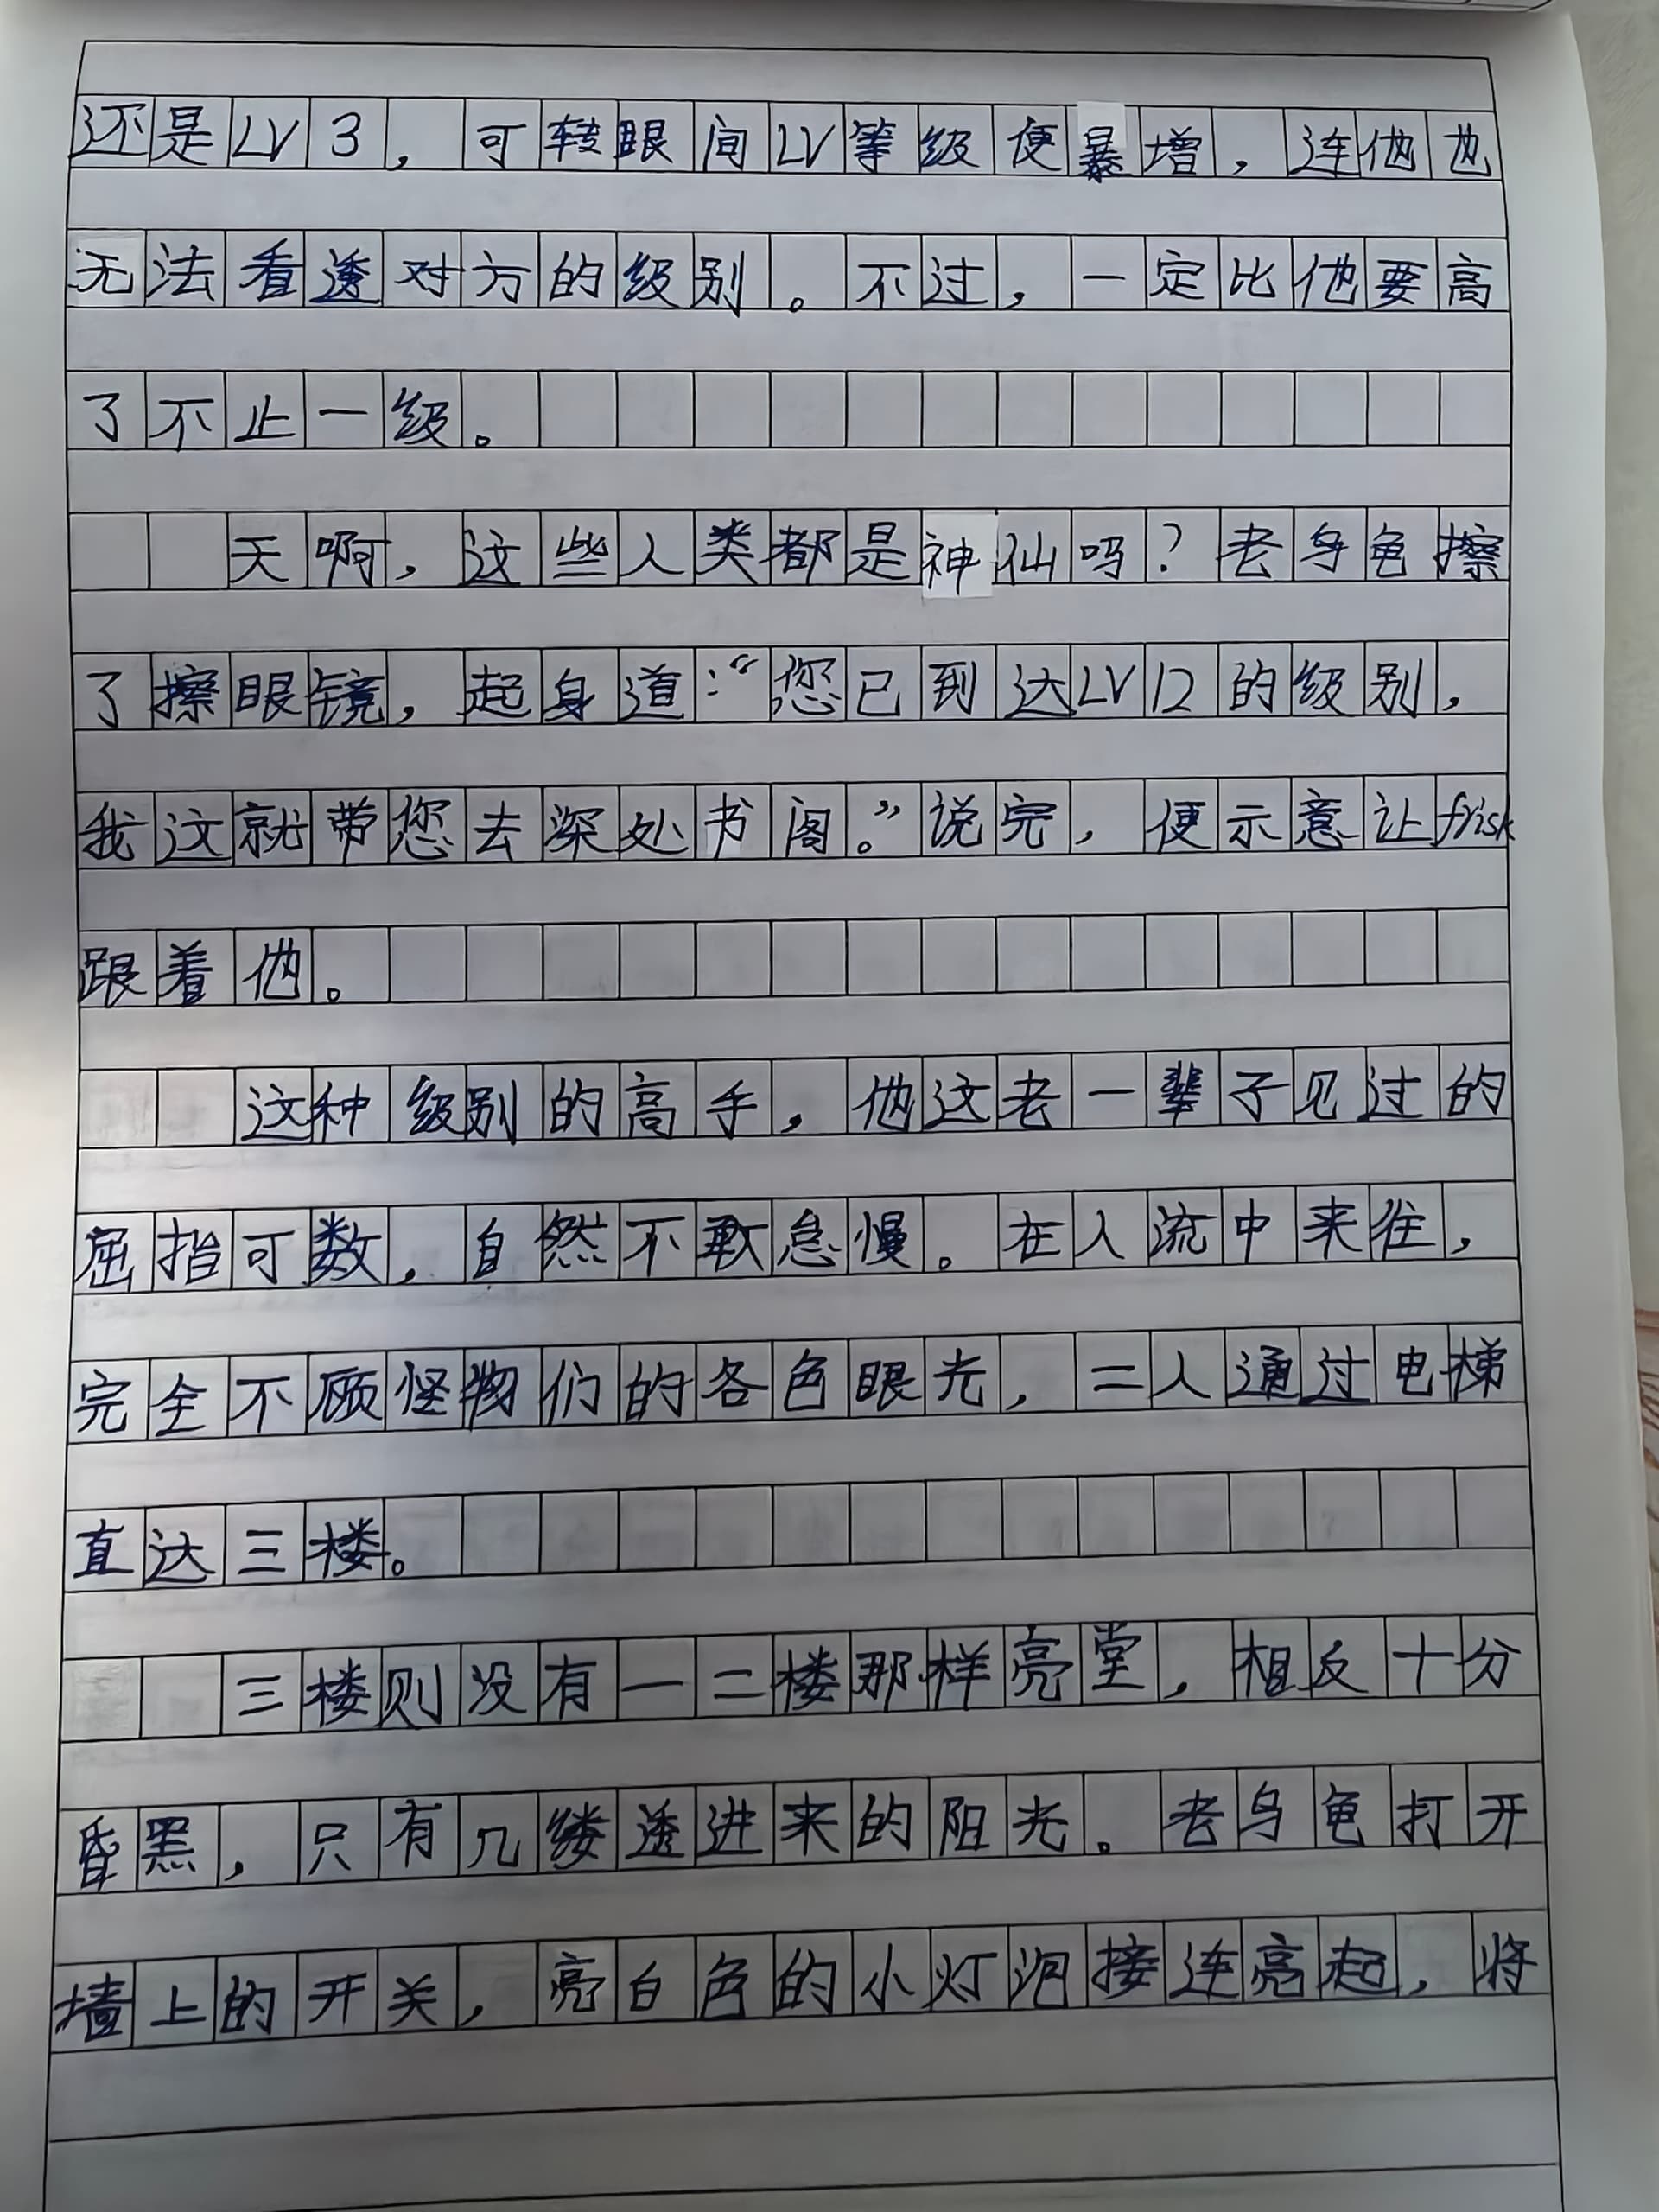 还是LV3，可转眼间LV等级便暴增，连他也
无法看透对方的级别。不过，一定比他要高
了不止一级。
天啊，这些人类都是神仙吗？老乌龟擦
了擦眼镜，起身道：“您已到达LV12的级别，
我这就带您去深处书阁。”说完，便示意让frisk
跟着他。
这种级别的高手，他这老一辈子见过的
屈指可数，自然不敢怠慢。在人流中来往，
完全不顾怪物们的各色眼光，二人通过电梯
直达三楼。
三楼则没有一二楼那样亮堂，相反十分
昏黑，只有几缕透进来的阳光。老乌龟打开
墙上的开关，亮白色的小灯泡接连亮起，将